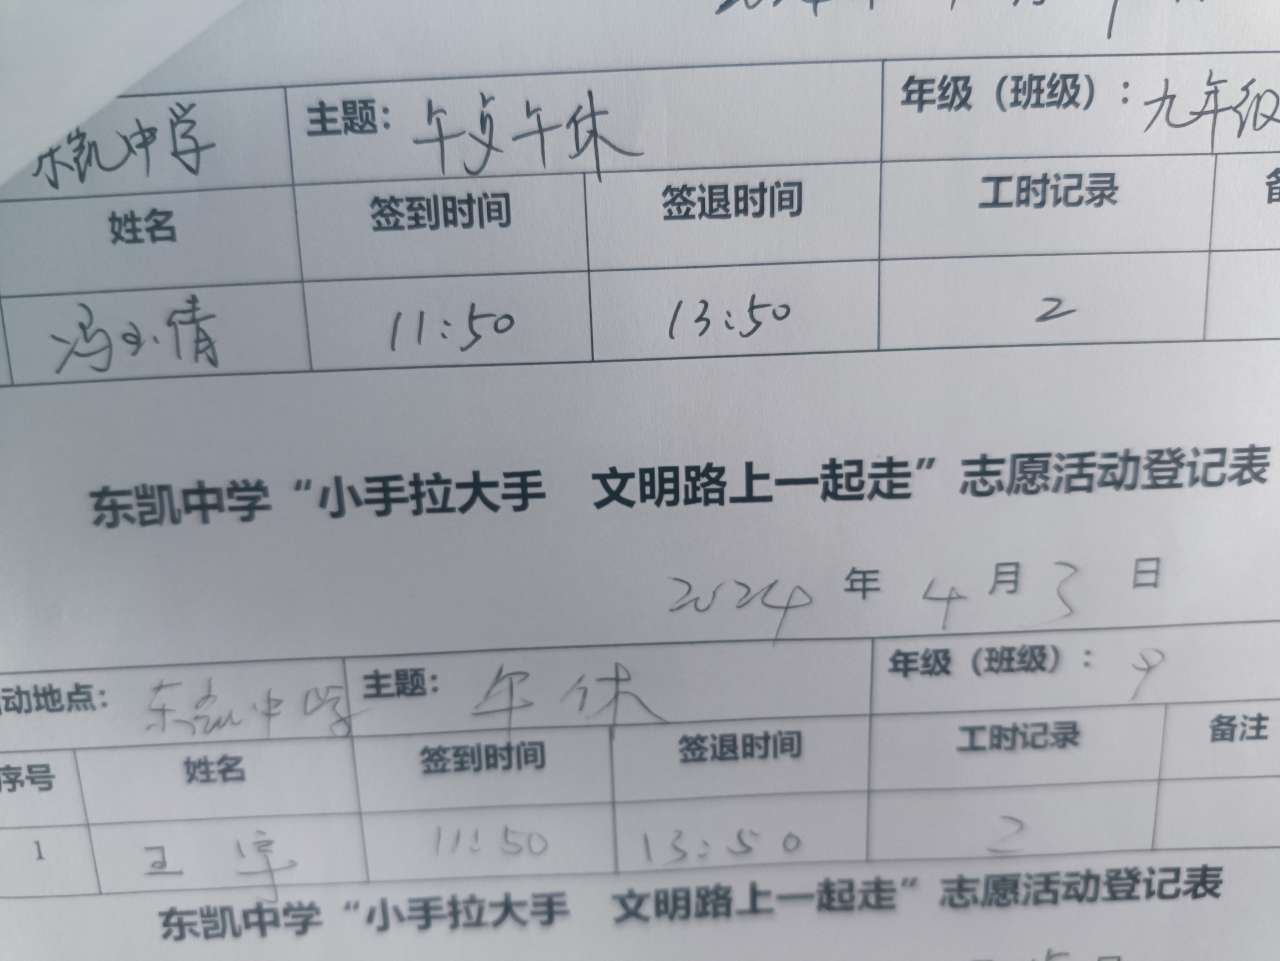 东凯中学 主题: 午 午休 年级（班级）: 九年级
姓名 签到时间 签退时间 工时记录
冯小倩 11:50 13:50 2
东凯中学“小手拉大手 文明路上一起走”志愿活动登记表
2024 年 4 月 3 日
动地点: 东凯中学 主题: 午休 年级（班级）: 9
序号 姓名 签到时间 签退时间 工时记录 备注
1 王宇 11:50 13:50 2
东凯中学“小手拉大手 文明路上一起走”志愿活动登记表